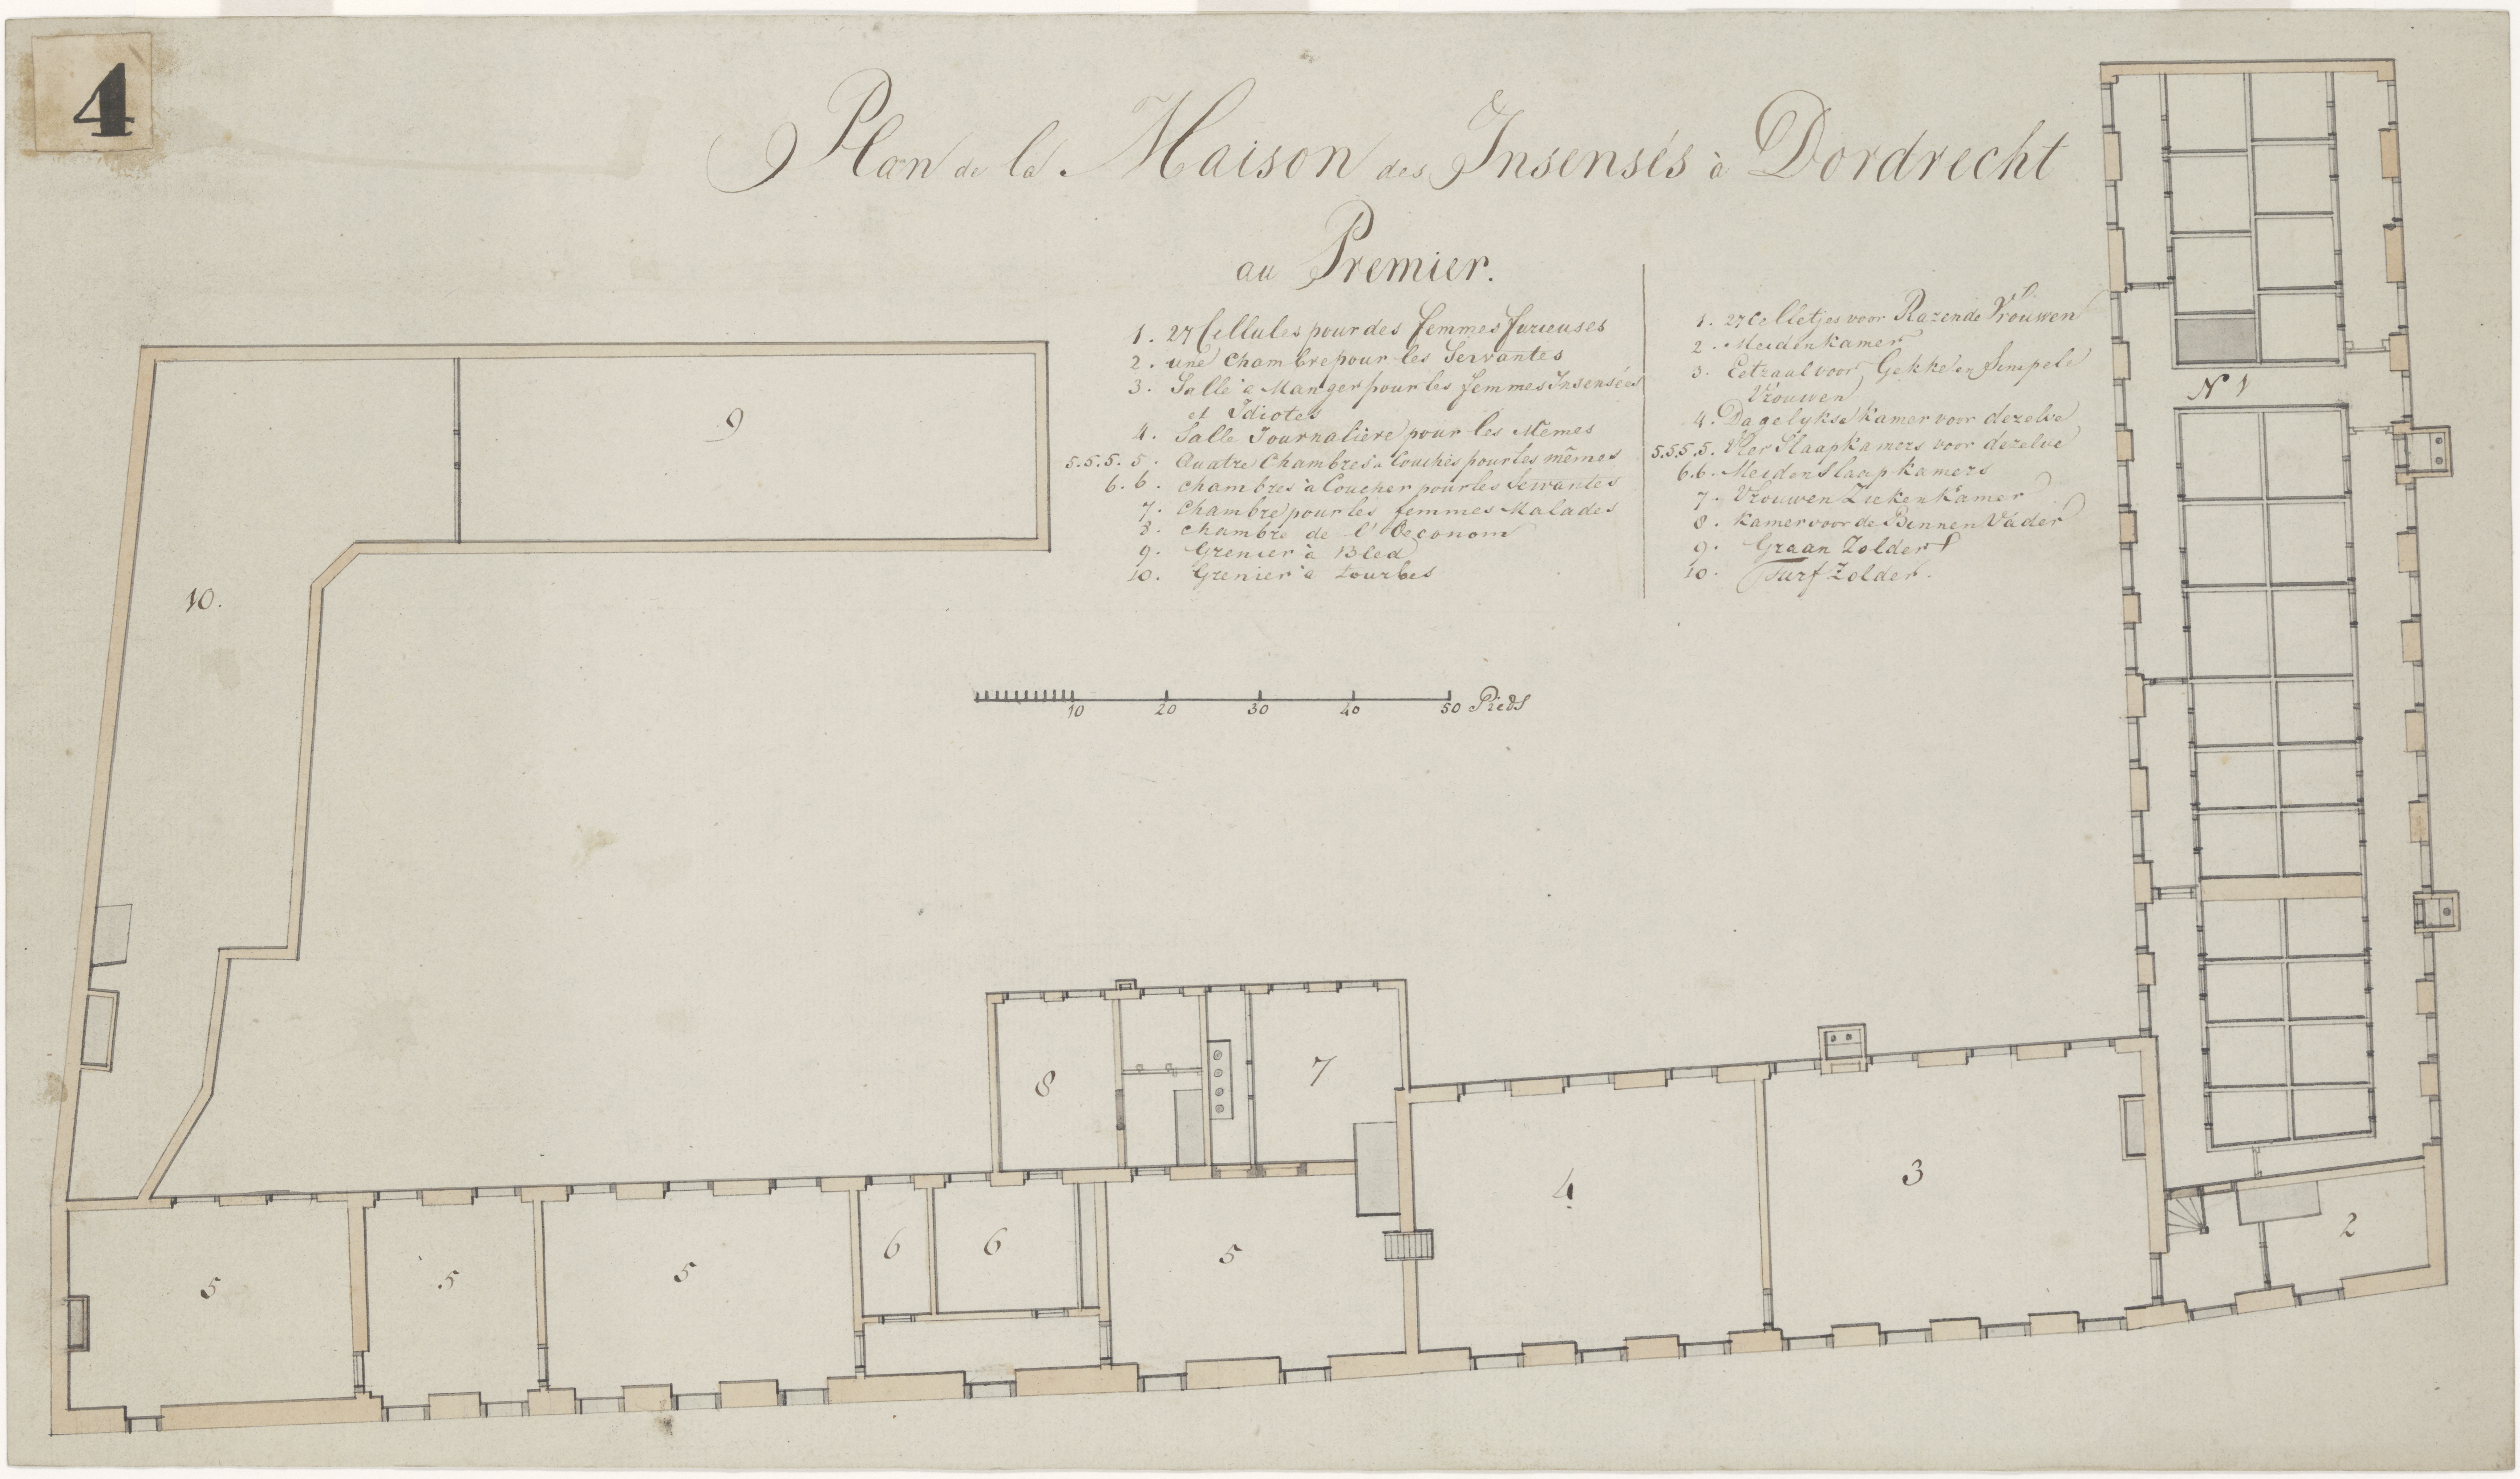 4
Plan de la Maison des Insensés à Dordrecht
au Premier.
1. 27 Cellules pour des femmes furieuses
2. une Chambre pour les Servantes
3. Salle à Manger pour les femmes Insensées
et Idiotes
4. Salle Journalière pour les Mêmes
5.5.5.5. Quatre Chambres à Couchés pour les mêmes
6.6. Chambres à Coucher pour les Servantes
7. Chambre pour les femmes Malades
8. Chambre de l'Oeconom
9. Grenier à Bled
10. Grenier à tourbes
1. 27 Celletjes voor Razende Vrouwen
2. Meidenkamer
3. Eetzaal voor Gekke en Simpele
Vrouwen
4. Dagelykse Kamer voor dezelve
5.5.5.5. Vier Slaapkamers voor dezelve
6.6. Meiden Slaap Kamers
7. Vrouwen Zieken Kamer
8. Kamer voor de Binnen Vader
9. Graan Zolder
10. Turf Zolder.
10 20 30 40 50 Pieds
N 1
9
10.
8
7
4
3
2
5
5
5
6
6
5